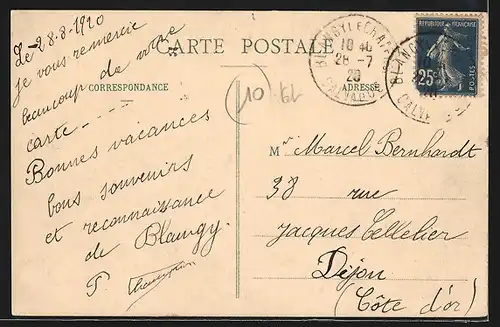 CARTE POSTALE
CORRESPONDANCE
ADRESSE
Le 28.8-1920
je vous remercie
beaucoup de votre
carte - - - -
Bonnes vacances
bons souvenirs
et reconnaissance
de Blangy.
P.
14
(10
BLANGY LE CHATEAU
10 40
28 -7
20
CALVADOS
REPUBLIQUE FRANÇAISE
25c
POSTES
BLANGY
CALV
Mr Marcel Bernhardt
38 rue
Jacques Cellerier
Dijon
(Côte d'or)